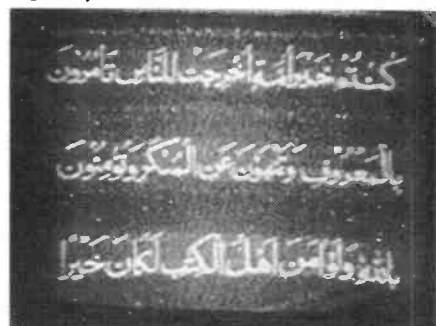 كُنْتُمْ خَيْرَ أُمَّةٍ أُخْرِجَتْ لِلنَّاسِ تَأْمُرُونَ
بِالْمَعْرُوفِ وَتَنْهَوْنَ عَنِ الْمُنْكَرِ وَتُؤْمِنُونَ
بِاللّٰهِ وَلَوْ اٰمَنَ اَهْلُ الْكِتٰبِ لَكَانَ خَيْرًا